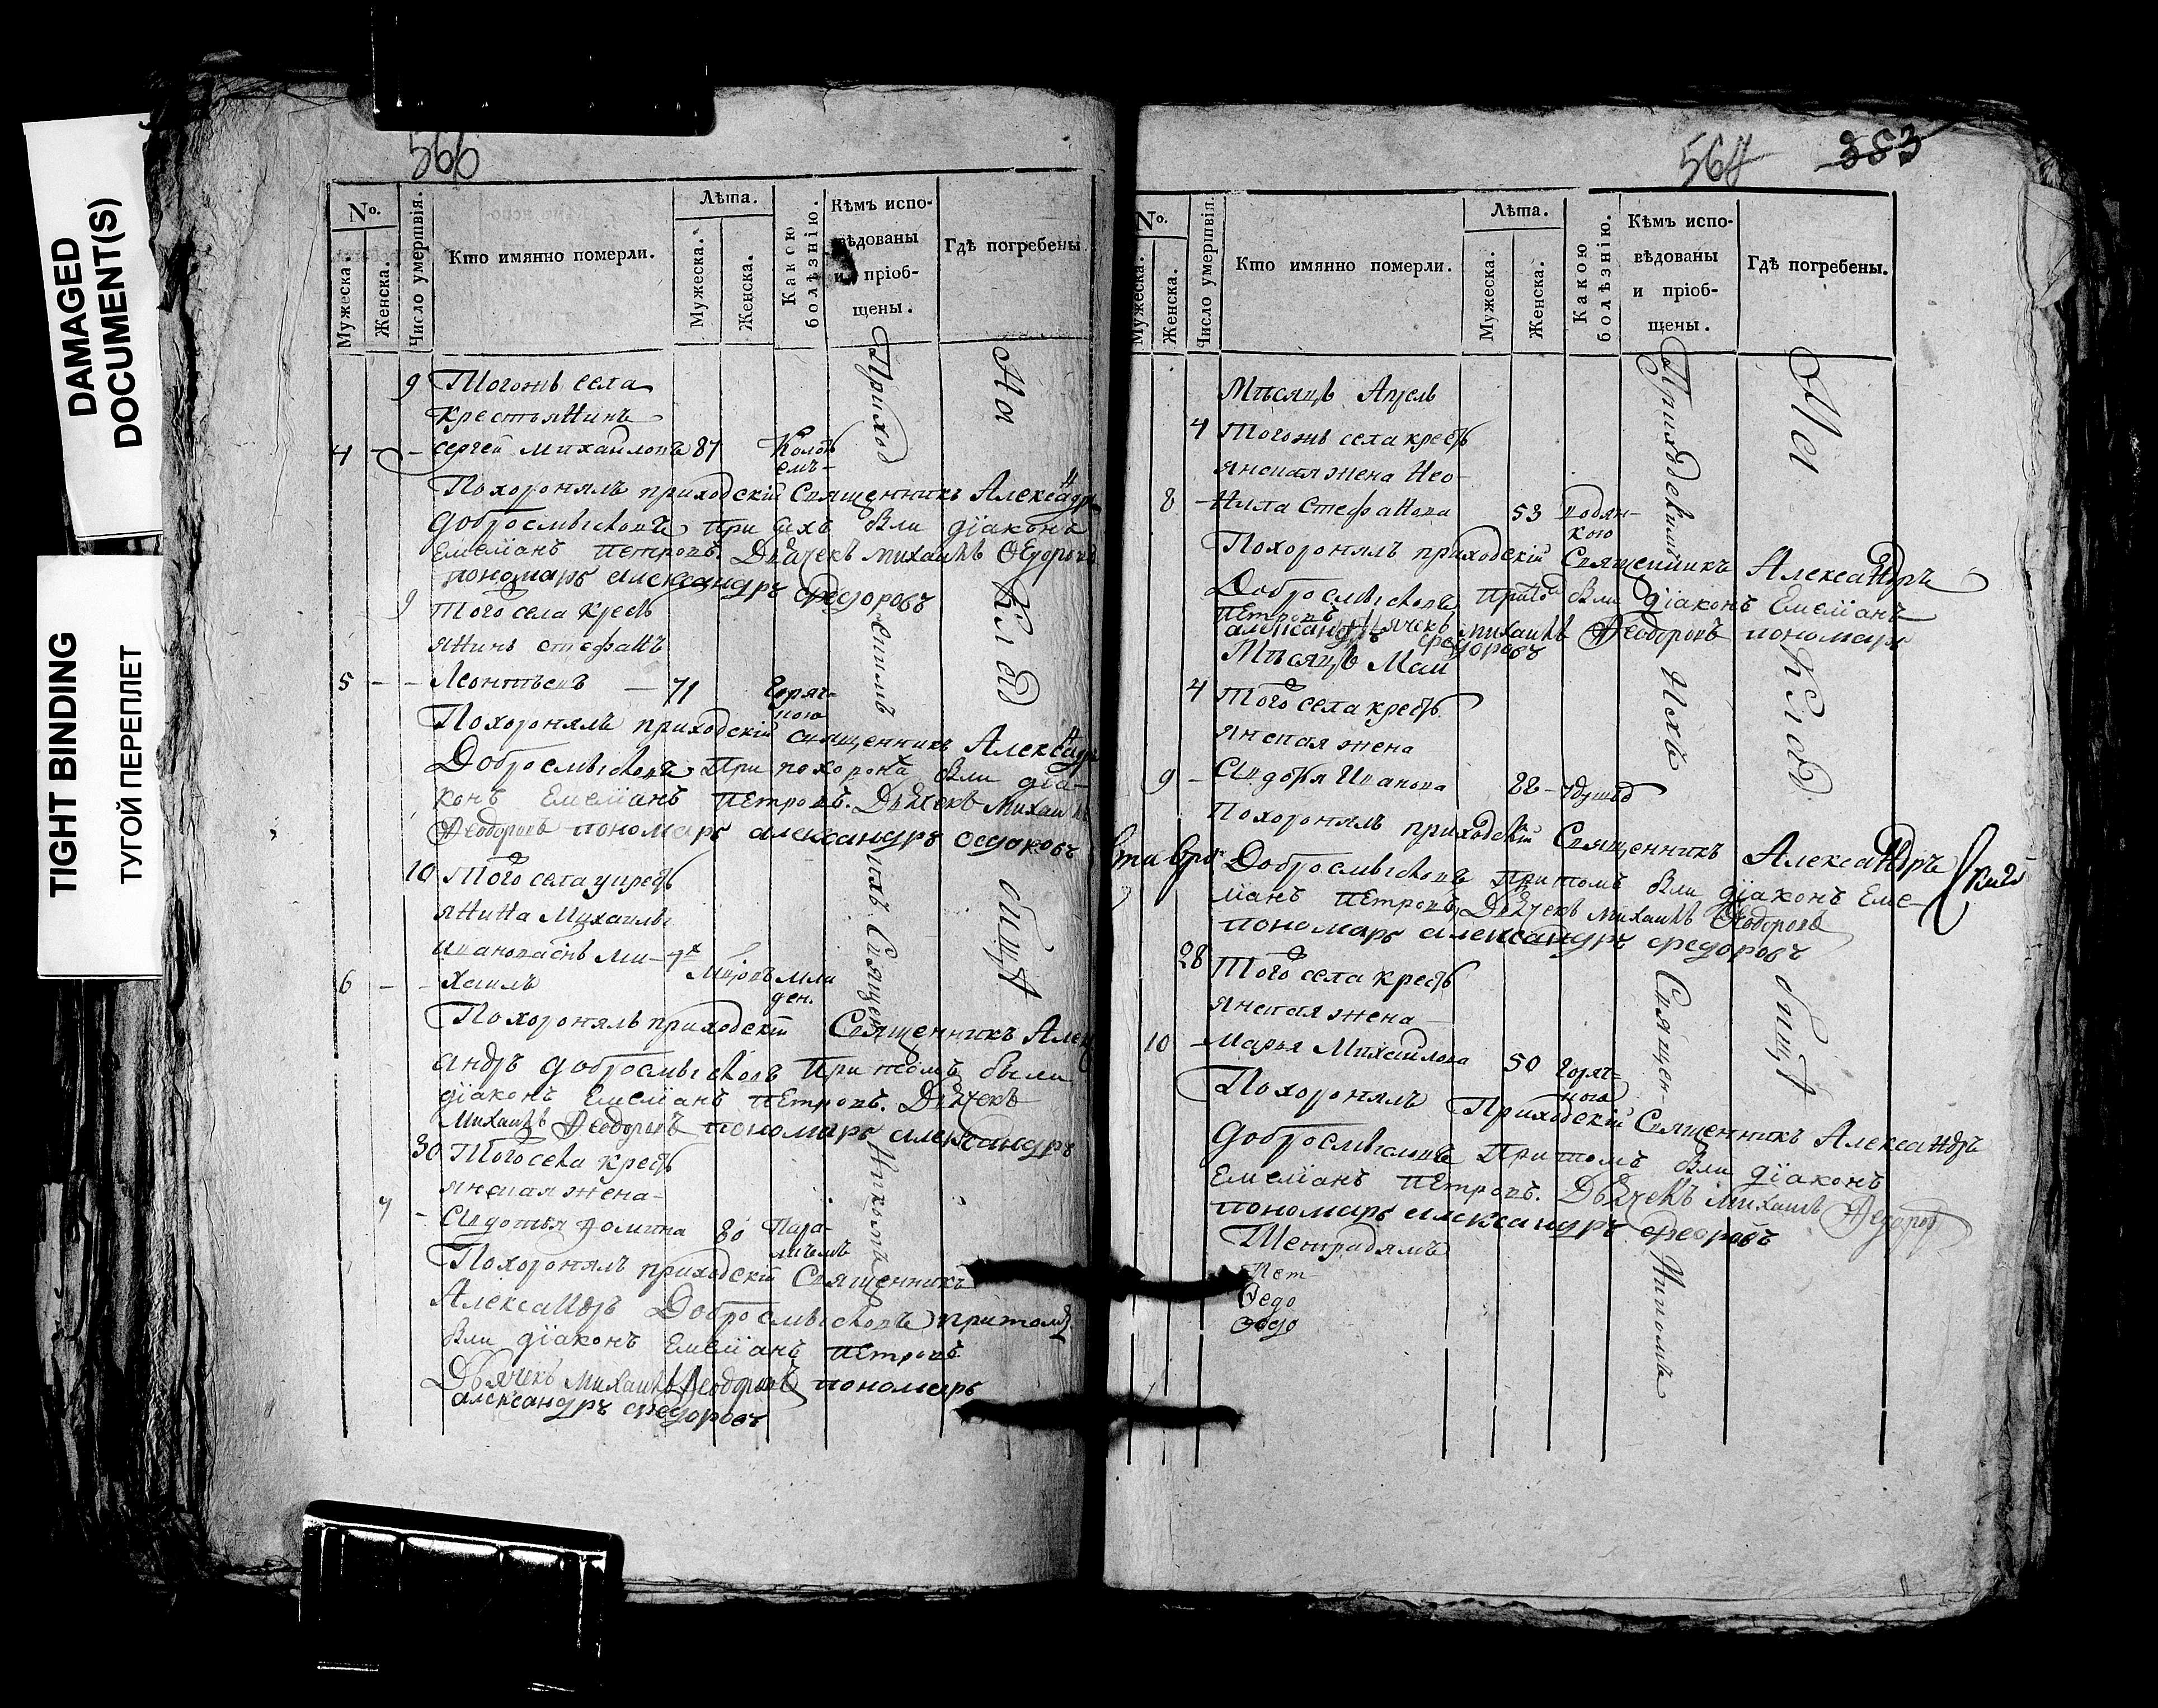 DAMAGED
DOCUMENT(S)
TIGHT BINDING
ТУГОЙ ПЕРЕПЛЕТ
566
№.
Мужеска.
Женска.
Число умершвія.
Кто имянно померли.
Лѣта.
Мужеска.
Женска.
Какою болѣзнію.
Кѣмъ испо-
вѣдованы
и пріоб-
щены.
Гдѣ погребены.
9 Тогожъ села
крестьянинъ
4 - - Сергей Михайловъ 87
Похоронялъ приходскій Священникъ Александръ
Добросмысловъ при сихъ были діаконъ
Емеліанъ Петровъ. Дьячекъ Михаилъ Ѳедоровъ
пономарь александръ федоровъ
9 Того села кресть
янинъ стефанъ
5 - - Леонтьевъ - 71 Горяч-
кою
Похоронялъ приходскій священникъ Александръ
Добросмысловъ При похоронахъ были діа-
конъ Емеліанъ Петровъ. Дьячекъ Михаилъ
Ѳеодоровъ пономарь александръ федоровъ
10 Того села у кресть
янина Михаила
Иванова снъ Ми-
6 - - хаилъ
младен.
Похоронялъ приходскій Священникъ Алек
андръ Добросмысловъ При томъ были
діаконъ Емеліанъ Петровъ. Дьячекъ
Михаилъ Ѳеодоровъ пономарь александръ
30 Того села кресть
янская жена
7 - Авдотья Фомина 80 Пара-
личемъ
Похоронялъ приходскій Священникъ
Александръ Добросмысловъ при томъ
были діаконъ Емеліанъ Петровъ
Дьячекъ Михаилъ Ѳеодоровъ пономарь
александръ федоровъ
Приход
скимъ
ихъ Священ
никомъ
На
клад
бищѣ
567 353
№.
Мужеска.
Женска.
Число умершвія.
Кто имянно померли.
Лѣта.
Мужеска.
Женска.
Какою болѣзнію.
Кѣмъ испо-
вѣдованы
и пріоб-
щены.
Гдѣ погребены.
Мѣсяцъ Апрель
4 Тогожъ села кресть
янская жена Нео-
8 - нила Стефанова 53 водян-
кою
Похоронялъ приходскій Священникъ Александръ
Добросмысловъ При томъ были діаконъ Емеліанъ
Петровъ Дьячекъ Михаилъ Ѳеодоровъ пономарь
александръ федоровъ
Мѣсяцъ Маи
4 Того села кресть
янская жена
9 - Авдотья Иванова 88 - удушьо
Похоронялъ приходскій Священникъ Александръ
Добросмысловъ При томъ были діаконъ Еме-
ліанъ Петровъ Дьячекъ Михаилъ Ѳеодоровъ
пономарь александръ федоровъ
28 Того села кресть
янская жена
10 - Марья Михайлова 50 Горяч-
кою
Похоронялъ Приходскій Священникъ Александръ
Добросмысловъ При томъ были діаконъ
Емеліанъ Петровъ. Дьячекъ Михаилъ Ѳедоровъ
пономарь александръ федоровъ
Приходскимъ
Ихъ
Священ-
никомъ
На
клад
бищѣ